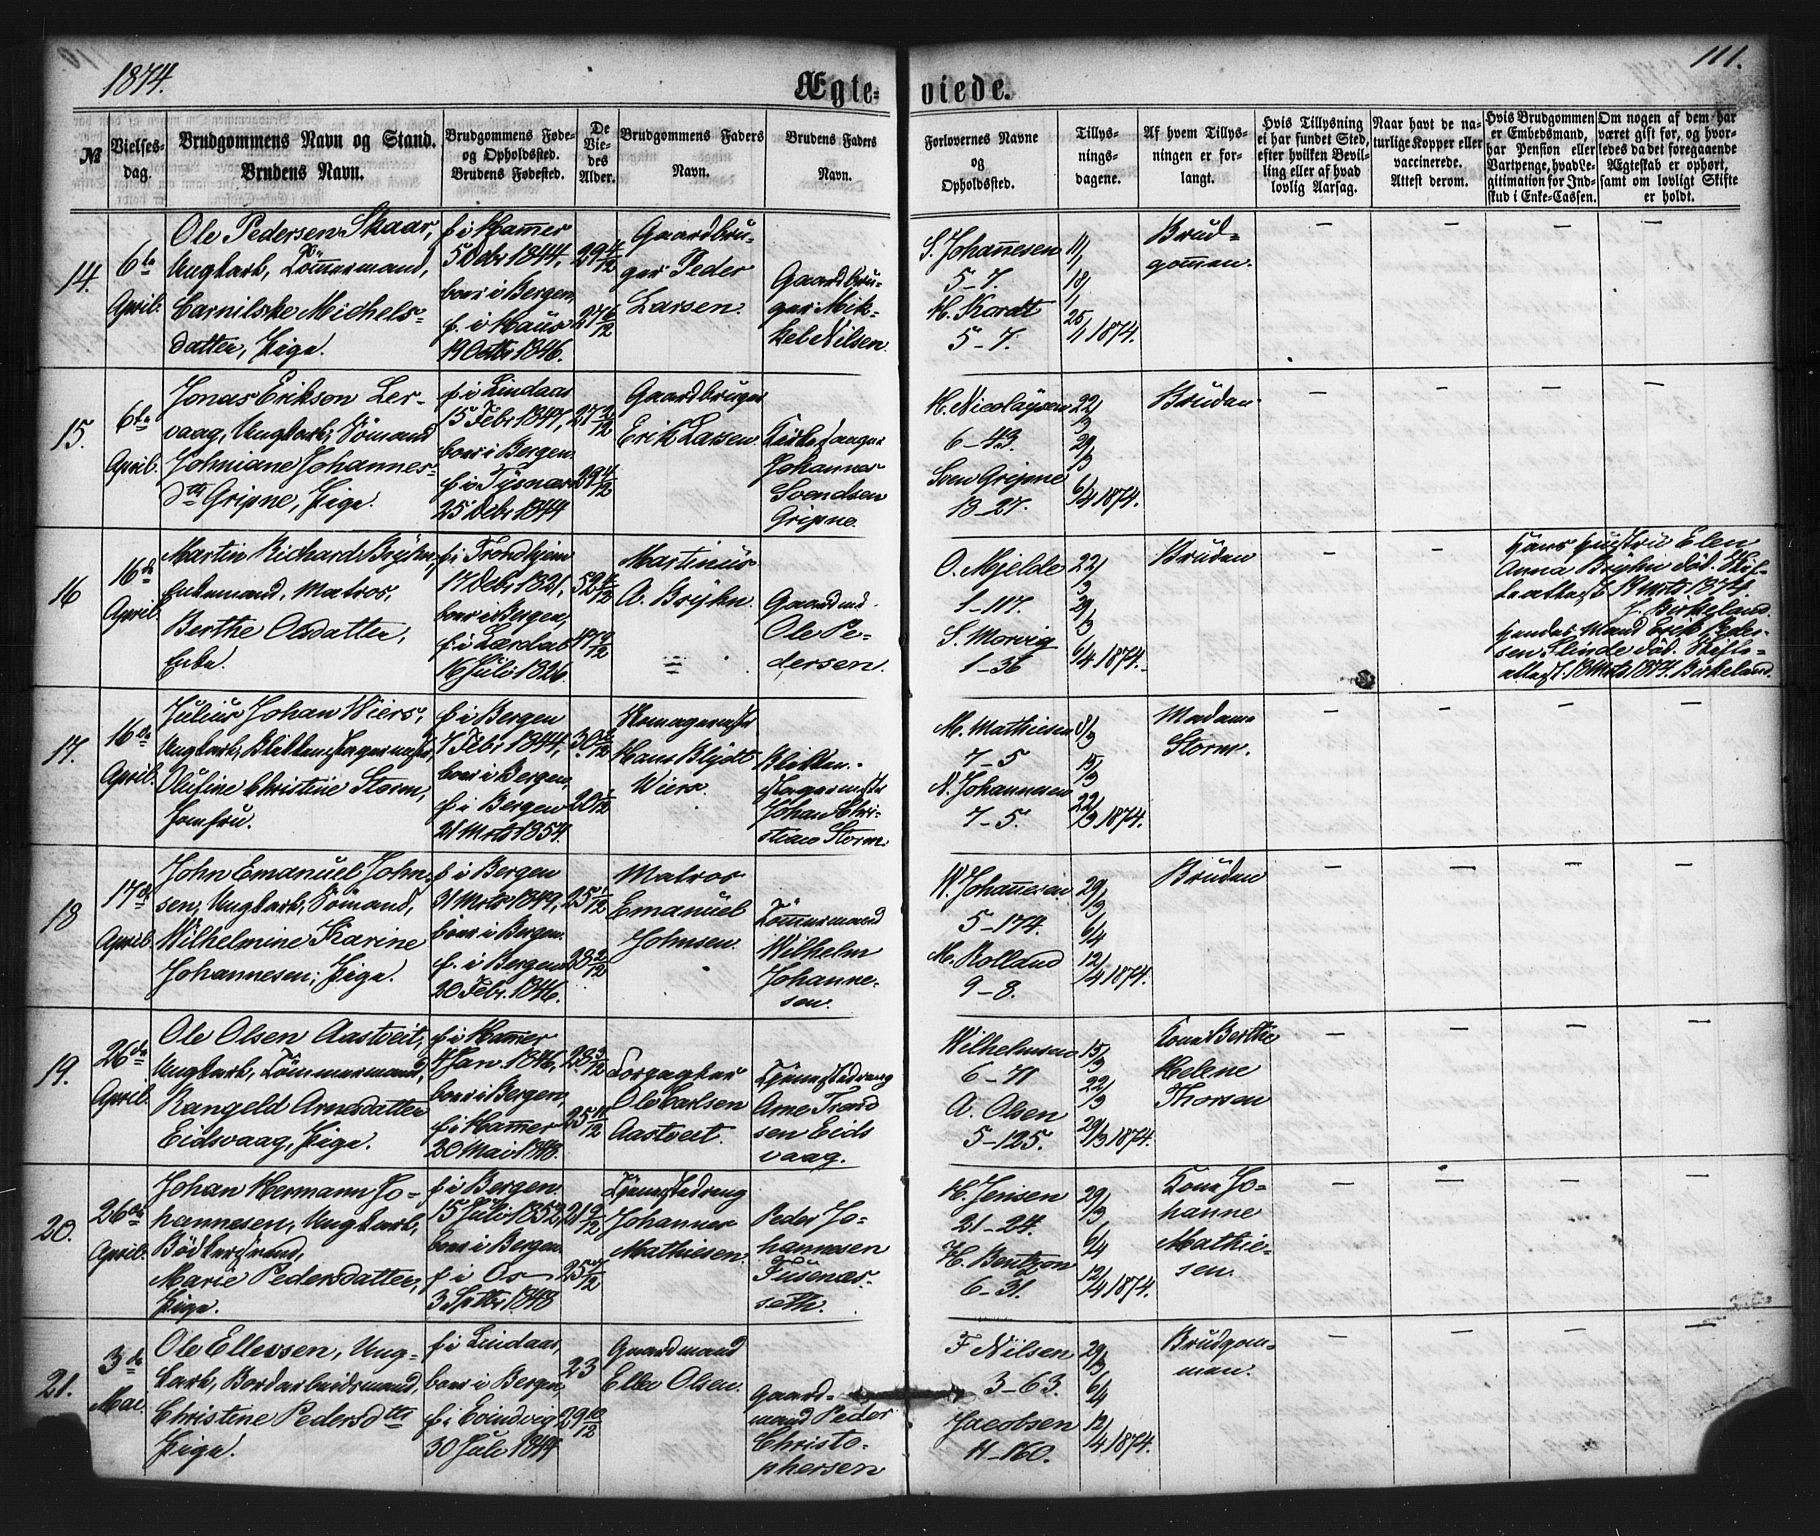 1874.
Ægte-
viede.
111.
№
Vielses-
dag.
Brudgommens Navn og Stand.
Brudens Navn.
Brudgommens Føde-
og Opholdssted.
Brudens Fødested.
De
Vie-
des
Alder.
Brudgommens Faders
Navn.
Brudens Faders
Navn.
Forlovernes Navne
og
Opholdssted.
Tillys-
nings-
dagene.
Af hvem Tillys-
ningen er for-
langt.
Hvis Tillysning
ei har fundet Sted,
efter hvilken Bevil-
ling eller af hvad
lovlig Aarsag.
Naar havt de na-
turlige Kopper eller
vaccinerede.
Attest derom.
Hvis Brudgommen
er Embedsmand,
har Pension eller
Vartpenge, hvad Le-
gitimation for Ind-
skud i Enke-Cassen.
Om nogen af dem har
været gift før, og hvor-
ledes da det foregaaende
Ægteskab er ophørt,
samt om lovligt Skifte
er holdt.
14.
6te
April.
Ole Pedersen Skaar,
Ungkarl, Tömmermand,
Carnilske Michels-
datter, Pige.
f. i Hamer
5 Debr 1844,
boer i Bergen,
f. i Haus
19 Octbr 1846.
29 4/12
27 6/12
Gaardbru-
ger Peder
Larsen.
Gaardbru-
ger Mik-
kel Nilsen.
S. Johannesen
5-7.
H. Kordt
5-7.
11/1
18/1
25/1 1874.
Brud-
gommen.
15.
6te
April.
Jonas Erikson Ler-
vaag, Ungkarl, Sömand
Johniane Johannes-
dtr Gripne, Pige.
f. i Lindaas
15 Febr 1847,
boer i Bergen.
f. i Tysnæs
25 Debr 1844
27 2/12
29 4/12
Gaardbruger
Erik Larsen.
Kirkesanger
Johannes
Svendsen
Gripne.
H. Nicolaysen
6-43.
Sven Gripne
13-27.
22/3
29/3
6/4 1874.
Bruden
16
16de
April.
Martin Richard Bryhn,
Enkemand, Matros,
Berthe Olsdatter,
Enke.
f. i Trondhjem
17 Debr 1821,
boer i Bergen,
f. i Lærdal
16 Juli 1826
52 4/12
47 9/12
Martinus
A. Bryhn.
Gaardmd.
Ole Pe-
dersen.
O. Mjelde
1-117.
S. Morvig
1-36
22/3
29/3
6/4 1874.
Bruden
Hans Hustru Elen
Anna Bryhn död. Skif-
teattest 19 Mrts 1874.
J. Birkeland.
Hendes Mand Erik Peder-
sen Slinde död. Skifte-
attest. 18 Mrts 1874. Birkeland.
17.
16de
April.
Julius Johan Wiers,
Ungkarl, Blikkenslagermester,
Olufine Christine Storm,
Jomfru.
f. i Bergen
7 Febr 1844,
boer i Bergen,
f. i Bergen
21 Mrts 1854.
30 2/12
20 1/12
Skomagermester
Hans Blydt
Wiers.
Blikken-
slagermester
Johan Chri-
stian Storm.
M. Mathiesen
7-5
N. Johannesen
7-5.
8/3
15/3
22/3 1874.
Madam
Storm.
18
17de
April.
John Emanuel John-
sen, Ungkarl, Sömand,
Wilhelmine Karine
Johannesen, Pige.
f. i Bergen
21 Mrts 1849,
boer i Bergen.
f. i Bergen
20 Febr. 1846.
25 1/12
28 2/12
Matros
Emanuel
Johnsen.
Tömmermand
Wilhelm
Johanne-
sen.
W. Johannesen
5-174.
M. Rolland
9-8.
29/3
6/4
12/4 1874.
Bruden
19.
26de
April.
Ole Olsen Aastveit,
Ungkarl, Tömmermand,
Rangeld Arnsdatter
Eidsvaag, Pige.
f. i Hamer
4 Jan. 1846,
boer i Bergen,
f. i Hamer
20 Mai 1848.
28 3/12
25 11/12
Forpagter
Ole Carlsen
Aastveit.
Tjenestedreng
Arne Trond
sen Eids
vaag.
Wilhelmsen
6-71
A. Olsen
5-125.
15/3
22/3
29/3 1874.
Kone Berthe
Helene
Thorsen
20.
26de
April.
Johan Hermann Jo-
hannesen, Ungkarl,
Bödkersvend,
Marie Pedersdatter,
Pige.
f. i Bergen.
15 Juli 1852,
boer i Bergen.
f. i Os
3 Septbr 1848
21 9/12
25 7/12
Tjenestedreng
Johannes
Mathiesen.
Peder Jo-
hannesen
Tusenæs-
seth.
H. Jensen
21-24.
H. Bentzon
6-31.
29/3
6/4
12/4 1874.
Kone Jo-
hanne
Mathie-
sen.
21.
3de
Mai.
Ole Ellevsen, Ung-
karl, Bordarbeidsmand,
Christine Pedersdtr
Pige.
f. i Lindaas,
boer i Bergen,
f. i Evindvig
30 Juli 1844
23
29 10/12
Gaardmand
Ellev Olsen.
Gaard-
mand Peder
Christo-
phersen
F. Nilsen
3-63.
Jacobsen
11-160.
29/3
6/4
12/4 1874.
Brudgom-
men.